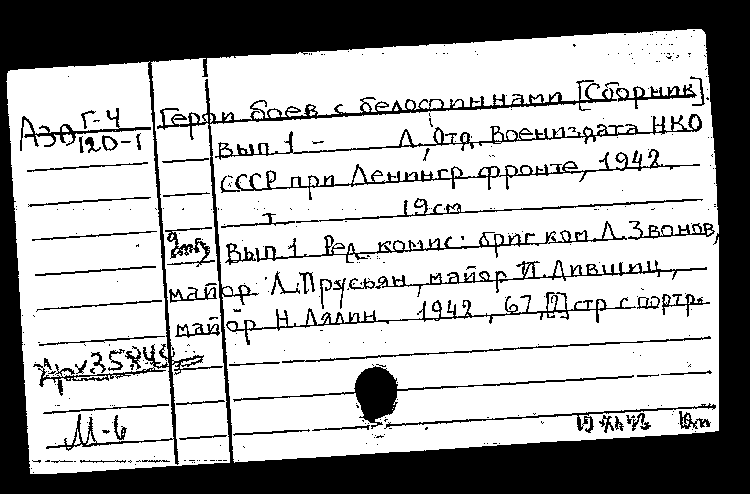 А30 Г-4
120-1
Герои боев с белофиннами [Сборник].
Вып. 1 - Л, Отд. Воениздата НКО
СССР при Ленингр фронте, 1942.
т 19см
Вып 1. Ред. комис: бриг ком. Л. Звонов,
майор Л. Прусьян, майор И. Дившиц,
майор Н. Лялин. 1942, 67, [2] стр с портр.
Арх 35849
М-6